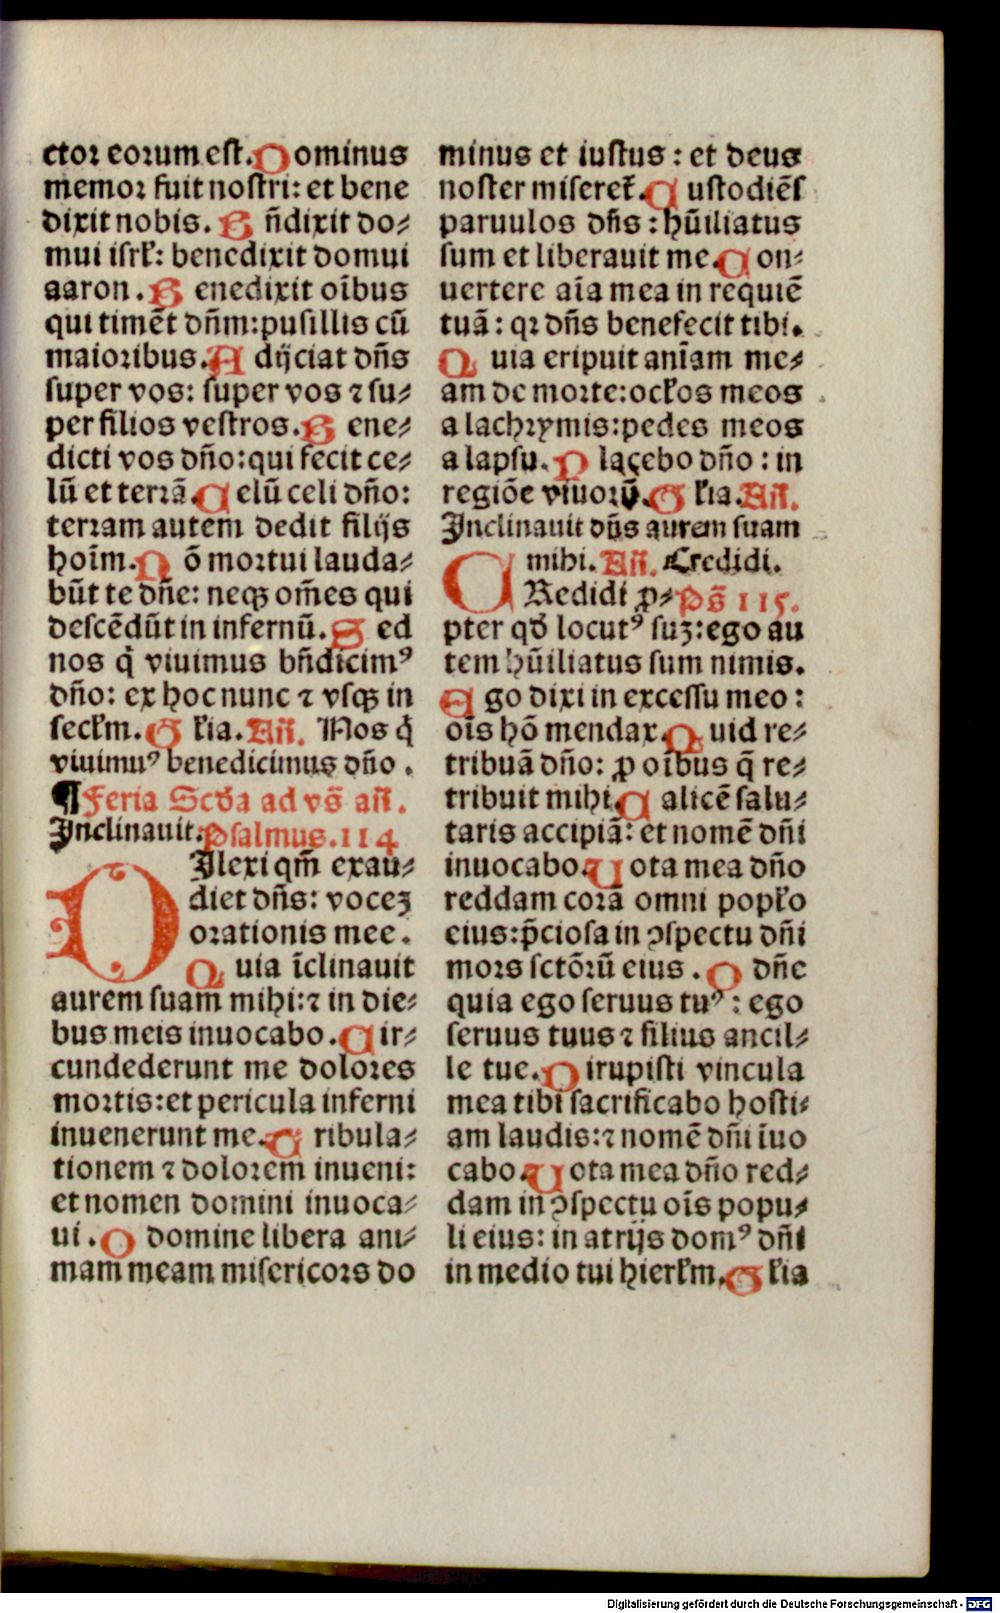 ctor eorum est. Dominus
memor fuit nostri: et bene
dixit nobis. Bñdixit do⸗
mui isrł: benedixit domui
aaron. Benedixit oĩbus
qui timẽt dñm: pusillis cũ
maioribus. Adijciat dñs
super vos: super vos ⁊ su⸗
per filios vestros. Bene⸗
dicti vos dño: qui fecit ce⸗
lũ et terrã. Celũ celi dño:
terram autem dedit filijs
hoĩm. Nõ mortui lauda⸗
bũt te dñe: neqꝫ om̃es qui
descẽdũt in infernũ. Sed
nos q̃ viuimus bñdicimꝰ
dño: ex hoc nunc ⁊ vsqꝫ in
secłm. Głia. Añ. Nos q̃
viuimuꝰ benedicimus dño.
¶ Feria Scd̓a ad vs̃ añ.
Inclinauit. Psalmus. 114
DIlexi qm̃ exau⸗
diet dñs: voceꝫ
orationis mee.
Quia ĩclinauit
aurem suam mihi: ⁊ in die⸗
bus meis inuocabo. Cir⸗
cundederunt me dolores
mortis: et pericula inferni
inuenerunt me. Tribula⸗
tionem ⁊ dolorem inueni:
et nomen domini inuoca⸗
ui. O domine libera ani⸗
mam meam misericors do
minus et iustus: et deus
noster miseret̃. Custodiẽs
paruulos dñs: hũiliatus
sum et liberauit me. Con⸗
uertere aĩa mea in requiẽ
tuã: qꝛ dñs benefecit tibi.
Quia eripuit anĩam me⸗
am de morte: ocłos meos
a lachrymis: pedes meos
a lapsu. Placebo dño: in
regiõe viuorũ. Głia. Añ.
Inclinauit dñs aurem suam
mihi. Añ. Credidi.
CRedidi ꝓ⸗ Ps̃ 115.
pter qd̓ locutꝰ suꝫ: ego au
tem hũiliatus sum nimis.
Ego dixi in excessu meo:
oĩs hõ mendax. Quid re⸗
tribuã dño: ꝓ oĩbus q̃ re⸗
tribuit mihi. Calicẽ salu⸗
taris accipiã: et nomẽ dñi
inuocabo. Uota mea dño
reddam corã omni popło
eius: p̃ciosa in ꝯspectu dñi
mors sctõrũ eius. O dñe
quia ego seruus tuꝰ: ego
seruus tuus ⁊ filius ancil⸗
le tue. Dirupisti vincula
mea tibi sacrificabo hosti⸗
am laudis: ⁊ nomẽ dñi ĩuo
cabo. Uota mea dño red⸗
dam in ꝯspectu oĩs popu⸗
li eius: in atrijs domꝰ dñi
in medio tui hierłm. Głia
Digitalisierung gefördert durch die Deutsche Forschungsgemeinschaft - DFG